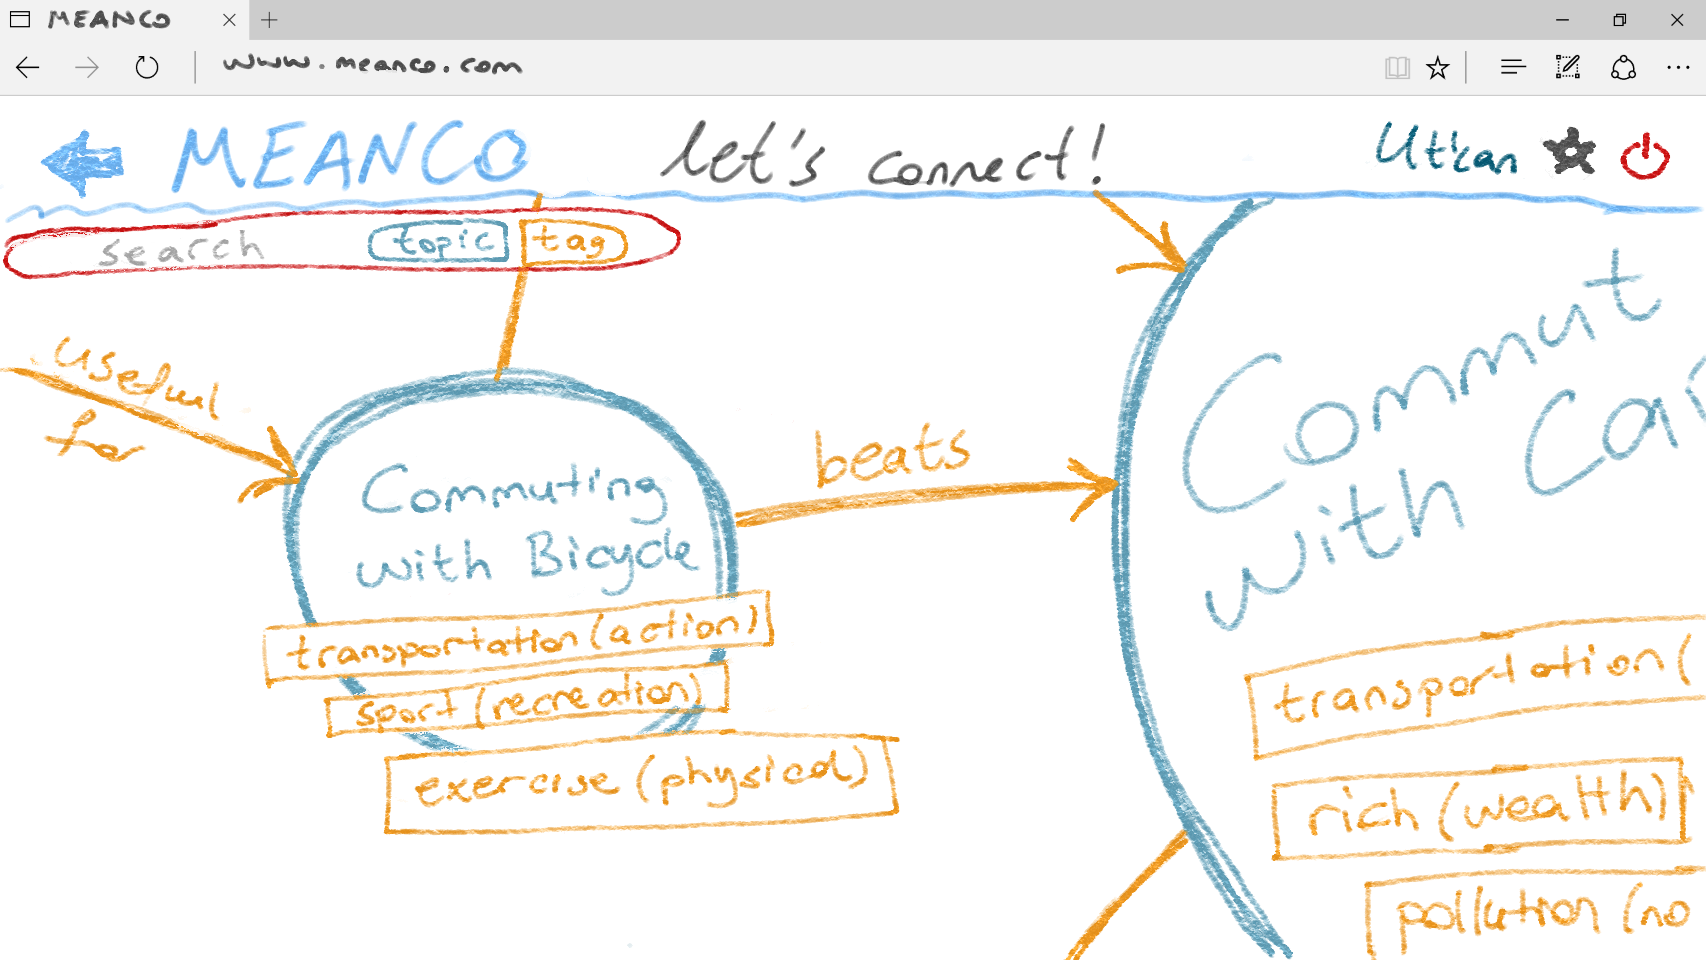 MEANCO
www.meanco.com
MEANCO let's connect! Utkan
search topic tag
useful
for
beats
Commuting
with Bicycle
transportation (action)
sport (recreation)
exercise (physical)
Commut
with Car
transportation (
rich (wealth)
pollution (no